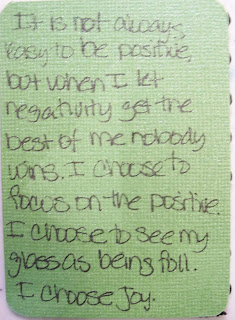 It is not always
easy to be positive,
but when I let
negativity get the
best of me nobody
wins. I choose to
focus on the positive.
I choose to see my
glass as being full.
I choose Joy.